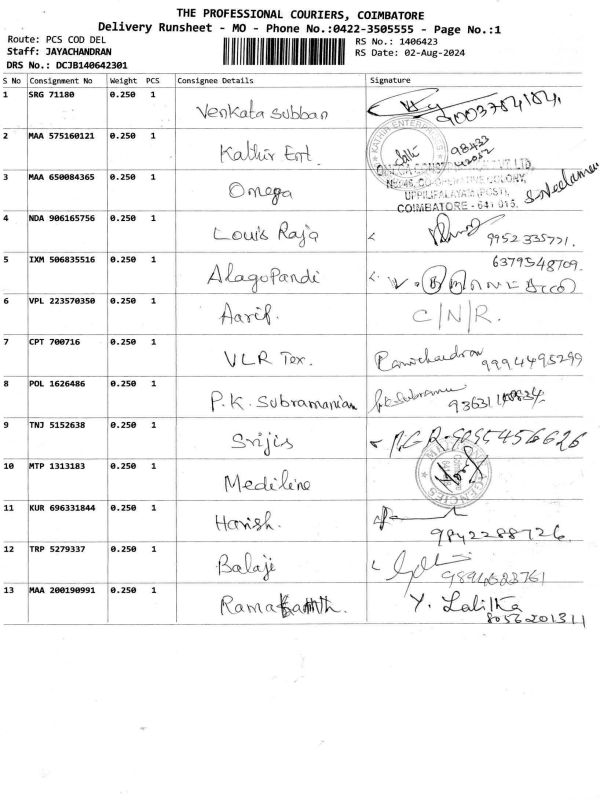 THE PROFESSIONAL COURIERS, COIMBATORE
Delivery Runsheet - MO - Phone No.:0422-3505555 - Page No.:1
Route: PCS COD DEL
RS No.: 1406423
Staff: JAYACHANDRAN
RS Date: 02-Aug-2024
DRS No.: DCJB140642301
S No Consignment No Weight PCS Consignee Details Signature
1 SRG 71180 0.250 1 Venkata Subban 9003784184
2 MAA 575160121 0.250 1 Kathir Ent. KATHIR ENTERPRISES 98433
3 MAA 650084365 0.250 1 Omega S. Neelamea
UPPILIPALAYAM (POST),
COIMBATORE - 641 015.
4 NDA 906165756 0.250 1 Louis Raja 9952335771.
5 IXM 506835516 0.250 1 Alagupandi 6379548709.
6 VPL 223570350 0.250 1 Aarif. C/N/R.
7 CPT 700716 0.250 1 VLR Tex. Ramachandran 9994495299
8 POL 1626486 0.250 1 P.K. Subramanian
9 TNJ 5152638 0.250 1 Srijis 9095456626
10 MTP 1313183 0.250 1 Mediline AGENCIES
11 KUR 696331844 0.250 1 Harish. 9842288726
12 TRP 5279337 0.250 1 Balaji
13 MAA 200190991 0.250 1 Ramakanth. Y. Lalitka
8056201311